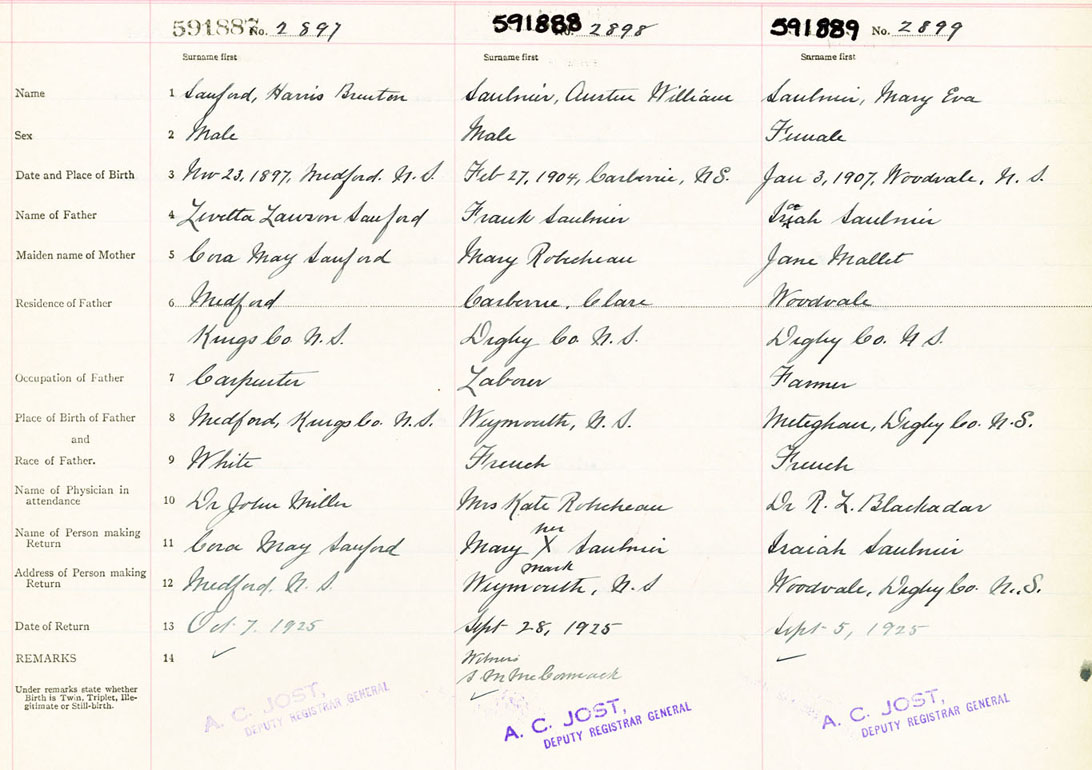 591887 No. 2897 591888 No. 2898 591889 No. 2899
Surname first Surname first Surname first
Name 1 Sanford, Harris Brenton Saulnier, Austin William Saulnier, Mary Eva
Sex 2 Male Male Female
Date and Place of Birth 3 Nov 23, 1897, Medford. N. S Feb 27, 1904, Carberrie, N.S. Jan 3, 1907, Woodvale, N. S.
Name of Father 4 Lawson Sanford Frank Saulnier Isaiah Saulnier
Maiden name of Mother 5 Cora May Sanford Mary Robicheau Jane Mallet
Residence of Father 6 Medford Carberrie, Clare Woodvale
Kings Co N. S. Digby Co N. S. Digby Co. N S.
Occupation of Father 7 Carpenter Labour Farmer
Place of Birth of Father 8 Medford, Kings Co. N. S. Weymouth, N. S. Meteghan, Digby Co. N.S.
and
Race of Father. 9 White French French
Name of Physician in
attendance 10 Dr John Miller Mrs Kate Robicheau Dr R. L. Blackadar
her
Name of Person making
Return 11 Cora May Sanford Mary X Saulnier Isaiah Saulnier
mark
Address of Person making
Return 12 Medford, N. S. Weymouth, N. S Woodvale, Digby Co. N.S.
Date of Return 13 Oct 7. 1925 Sept 28, 1925 Sept 5, 1925
REMARKS 14 Witness
S. M McCormack
Under remarks state whether
Birth is Twin, Triplet, Ille-
gitimate or Still-birth.
A. C. JOST, A. C. JOST, A. C. JOST,
DEPUTY REGISTRAR GENERAL DEPUTY REGISTRAR GENERAL DEPUTY REGISTRAR GENERAL